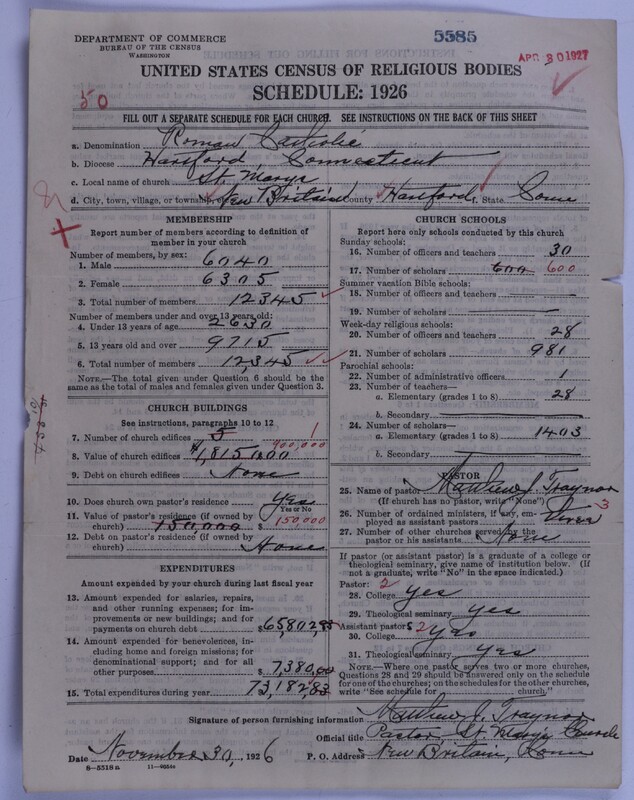 DEPARTMENT OF COMMERCE
BUREAU OF THE CENSUS
WASHINGTON
5585
APR 30 1927
UNITED STATES CENSUS OF RELIGIOUS BODIES
SCHEDULE: 1926
50
FILL OUT A SEPARATE SCHEDULE FOR EACH CHURCH. SEE INSTRUCTIONS ON THE BACK OF THIS SHEET
a. Denomination Roman Catholic
b. Diocese Hartford, Connecticut
c. Local name of church St Marys
d. City, town, village, or township New Britain County Hartford State Conn
MEMBERSHIP
Report number of members according to definition of
member in your church
Number of members, by sex:
1. Male 6040
2. Female 6305
3. Total number of members 12345
Number of members under and over 13 years old:
4. Under 13 years of age 2630
5. 13 years old and over 9715
6. Total number of members 12,345
NOTE.—The total given under Question 6 should be the
same as the total of males and females given under Question 3.
CHURCH BUILDINGS
See instructions, paragraphs 10 to 12
7. Number of church edifices 5 1
8. Value of church edifices $ 1,815,000 400,000
9. Debt on church edifices None
10. Does church own pastor's residence Yes
Yes or No
11. Value of pastor's residence (if owned by
church) 150,000 $ 150,000
12. Debt on pastor's residence (if owned by
church) None
EXPENDITURES
Amount expended by your church during last fiscal year
13. Amount expended for salaries, repairs,
and other running expenses; for im-
provements or new buildings; and for
payments on church debt $ 65802,83
14. Amount expended for benevolences, in-
cluding home and foreign missions; for
denominational support; and for all
other purposes $ 7,380,00
15. Total expenditures during year 73,182,83
CHURCH SCHOOLS
Report here only schools conducted by this church
Sunday schools:
16. Number of officers and teachers 30
17. Number of scholars 600 600
Summer vacation Bible schools:
18. Number of officers and teachers
19. Number of scholars
Week-day religious schools:
20. Number of officers and teachers 28
21. Number of scholars 981
Parochial schools:
22. Number of administrative officers 1
23. Number of teachers—
a. Elementary (grades 1 to 8) 28
b. Secondary
24. Number of scholars—
a. Elementary (grades 1 to 8) 1403
b. Secondary
PASTOR
25. Name of pastor Matthew J. Traynor
(If church has no pastor, write "None")
26. Number of ordained ministers, if any, em-
ployed as assistant pastors Three 3
27. Number of other churches served by the
pastor or his assistants None
If pastor (or assistant pastor) is a graduate of a college or
theological seminary, give name of institution below. (If
not a graduate, write "No" in the space indicated.)
Pastor: 2
28. College Yes
29. Theological seminary Yes
Assistant pastors 2
30. College Yes
31. Theological seminary Yes
NOTE.—Where one pastor serves two or more churches,
Questions 28 and 29 should be answered only on the schedule
for one of the churches; on the schedules for the other churches,
write "See schedule for church."
Signature of person furnishing information Matthew J. Traynor
Official title Pastor, St. Marys Church
Date November 30, 1926 P. O. Address New Britain, Conn